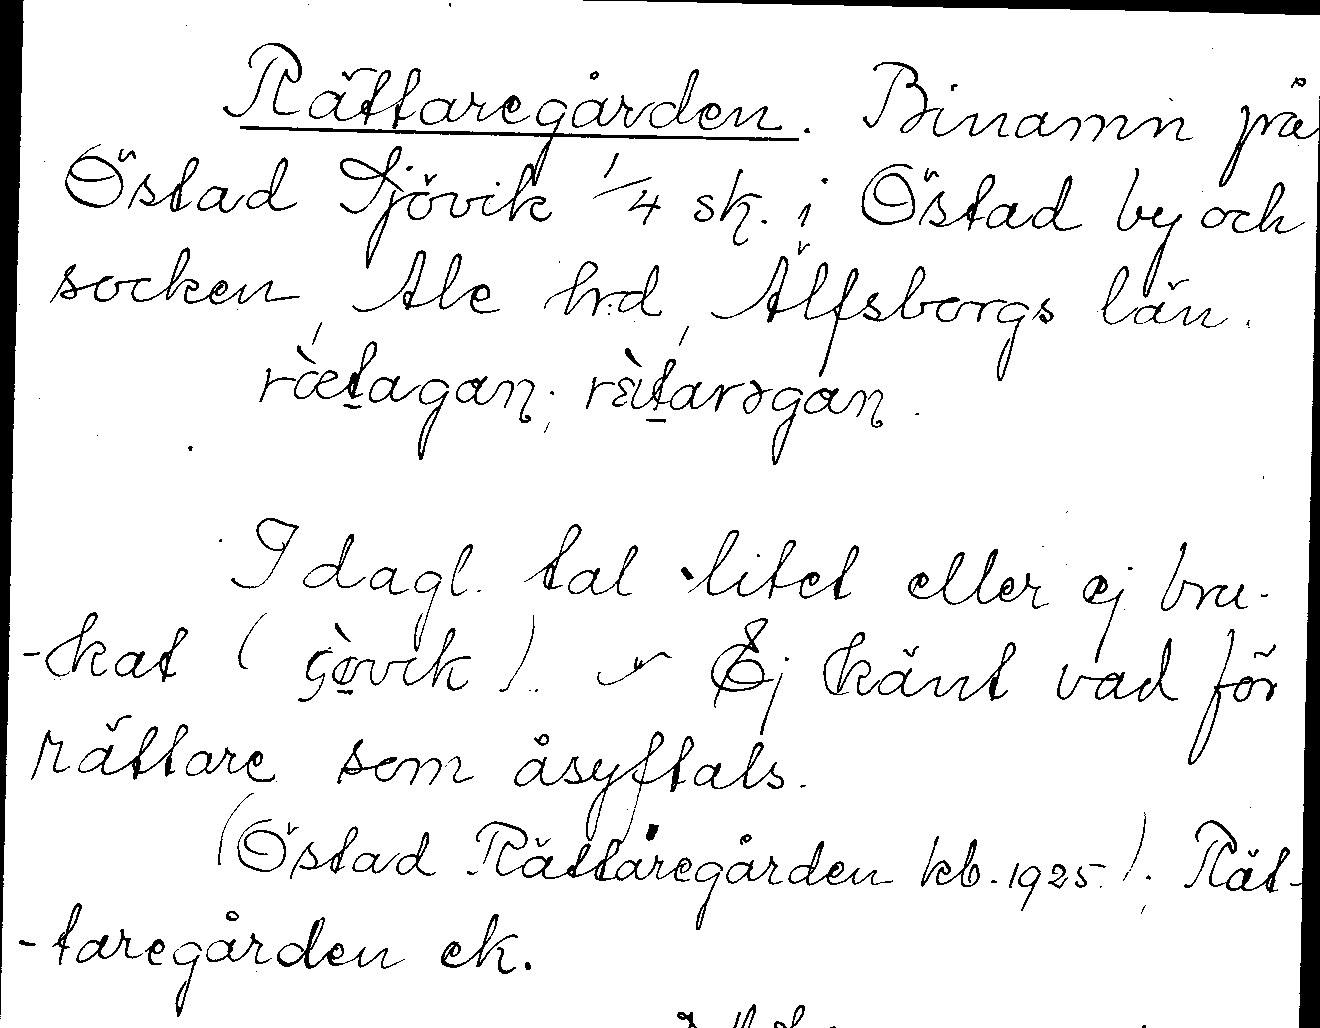 Rättaregården. Binamn på
Östad Sjövik 1/4 sk. i Östad by och
socken, Ale hrd, Älfsborgs län.
rætagaɳ; rɛ̀tarəgaɳ.
I dagl. tal litet eller ej bru-
-kat ( ). Ej känt vad för
rättare som åsyftals.
(Östad Rättaregården kb. 1925.); Rät-
-taregården ek.